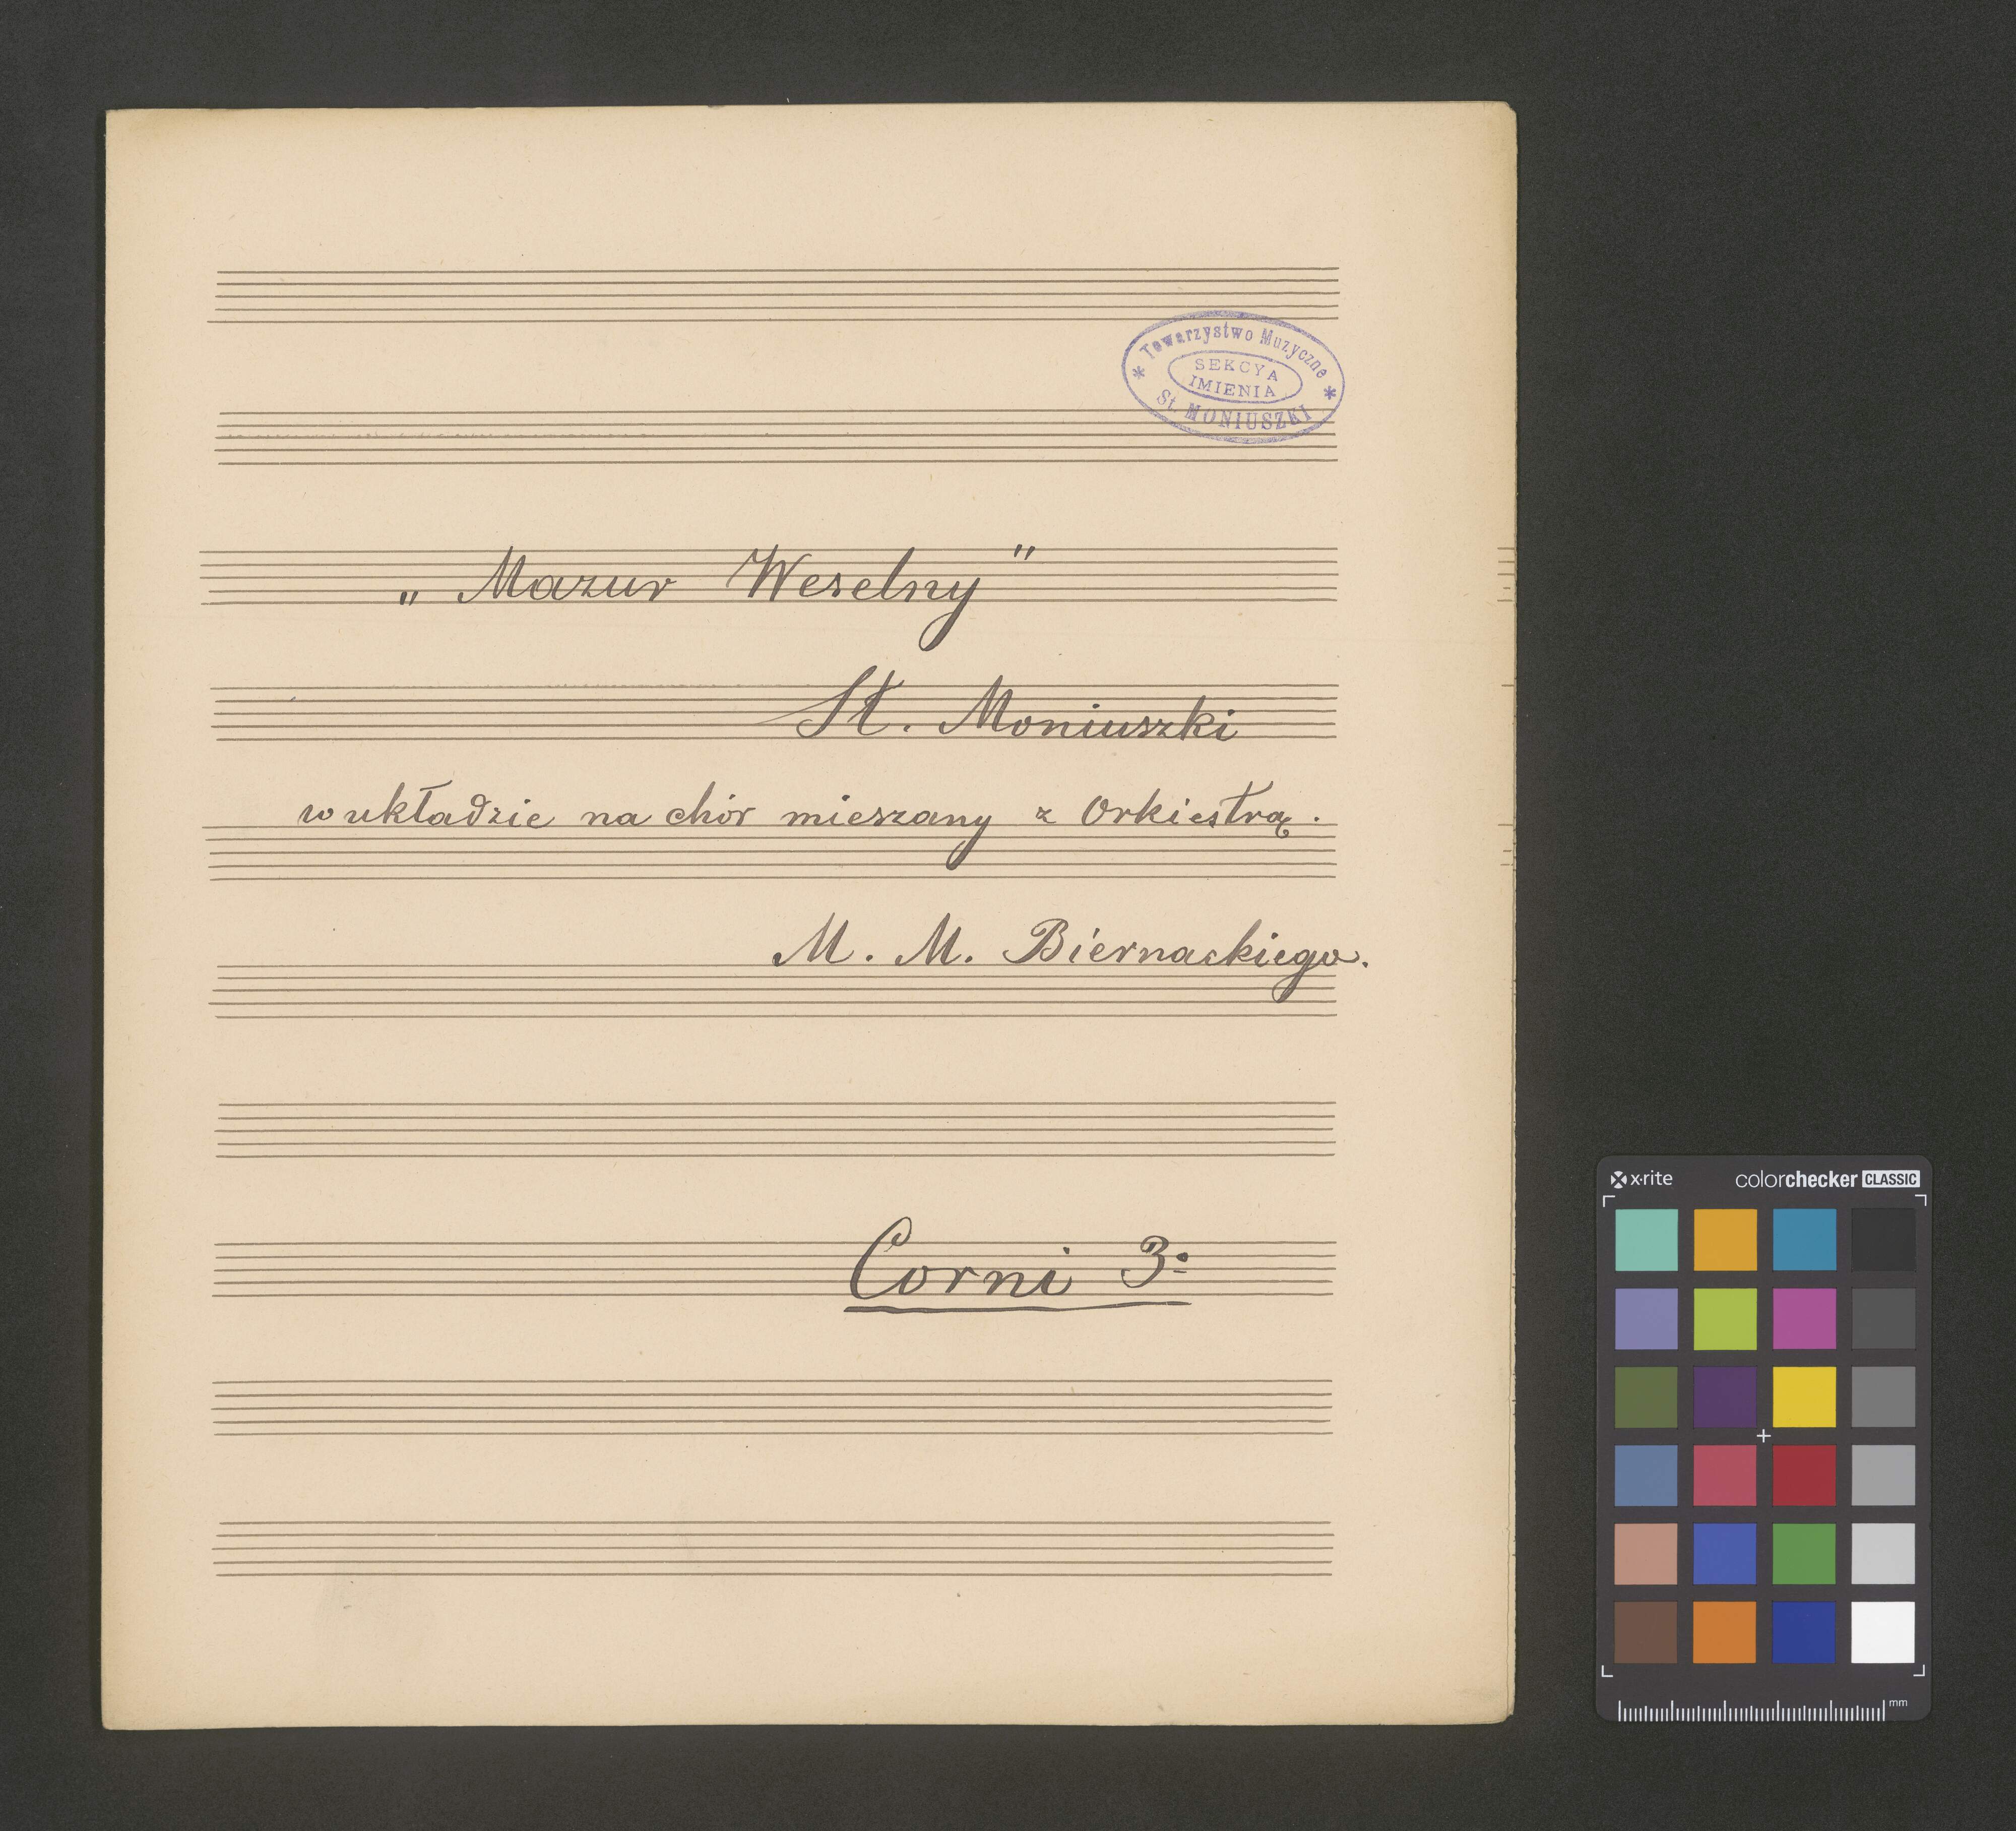 * Towarzystwo Muzyczne *
SEKCYA
IMIENIA
St. MONIUSZKI
„Mazur Weselny"
St. Moniuszki
w układzie na chór mieszany z Orkiestrą.
M. M. Biernackiego.
Corni 3:
x·rite colorchecker CLASSIC
mm